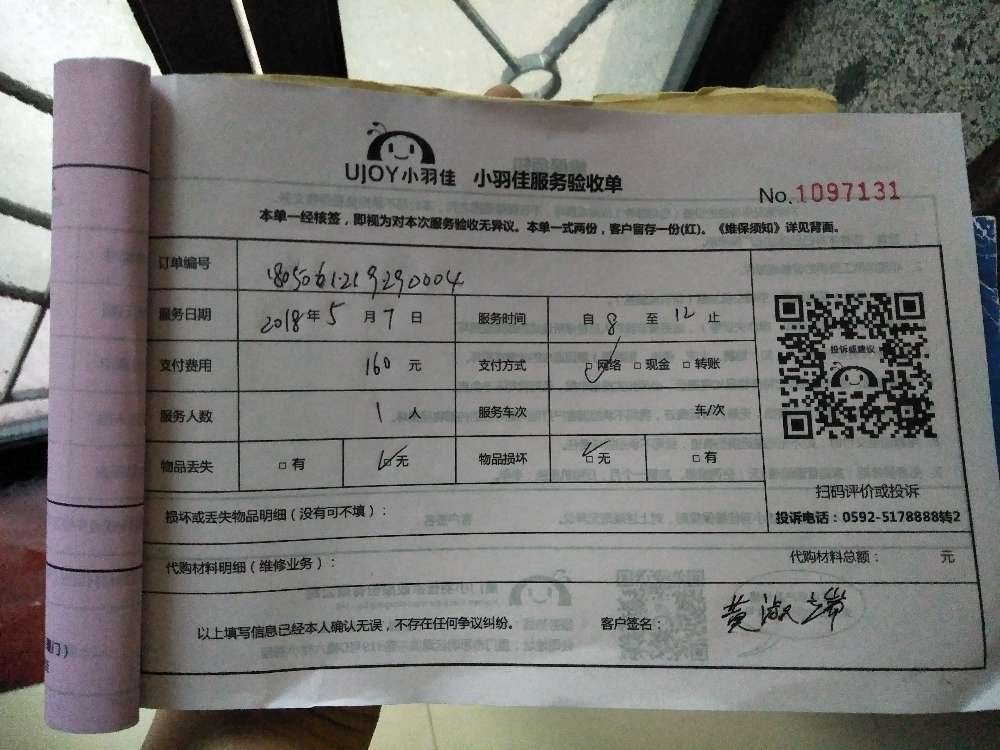 UJOY小羽佳 小羽佳服务验收单
No.1097131
本单一经核签，即视为对本次服务验收无异议。本单一式两份，客户留存一份(红)。《维保须知》详见背面。
订单编号
服务日期 2018年5月7日 服务时间 自8至12止
支付费用 160元 支付方式 □网络 □现金 □转账
服务人数 1人 服务车次 车/次
物品丢失 □有 □无 物品损坏 □无 □有
投诉或建议
扫码评价或投诉
投诉电话：0592-5178888转2
损坏或丢失物品明细（没有可不填）：
代购材料明细（维修业务）： 代购材料总额： 元
以上填写信息已经本人确认无误，不存在任何争议纠纷。 客户签名： 黄淑端